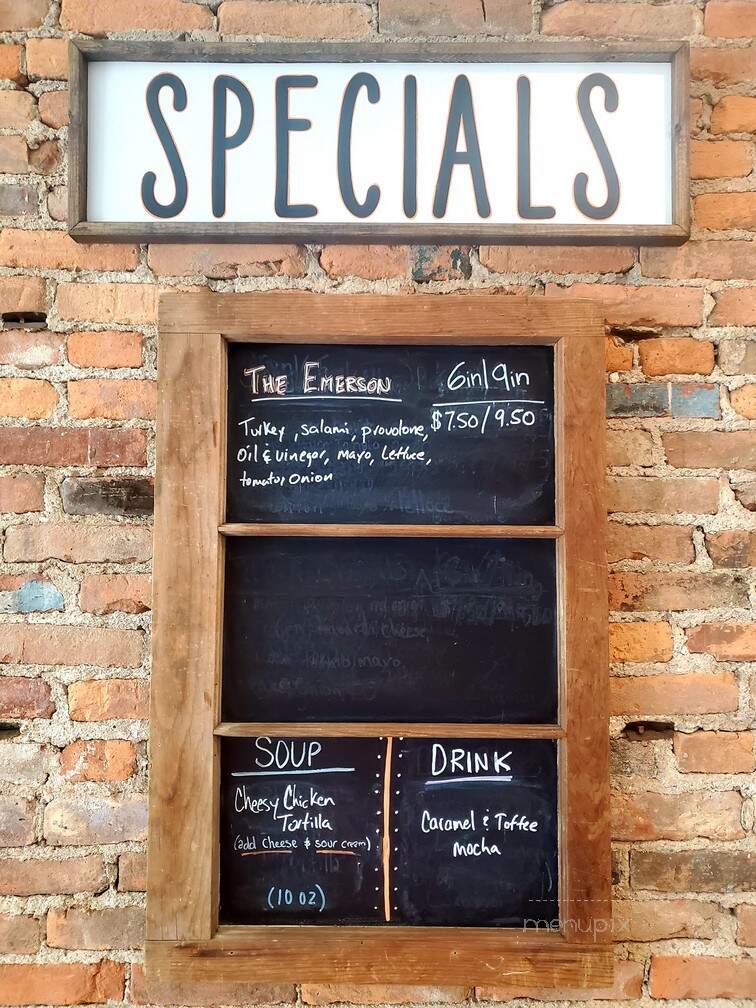 SPECIALS
THE EMERSON
6in/9in
$7.50/9.50
Turkey, salami, provolone,
Oil & vinegar, mayo, lettuce,
tomato, onion
SOUP
Cheesy Chicken
Tortilla
(add cheese & sour cream)
(10 oz)
DRINK
Caramel & Toffee
mocha
menupix